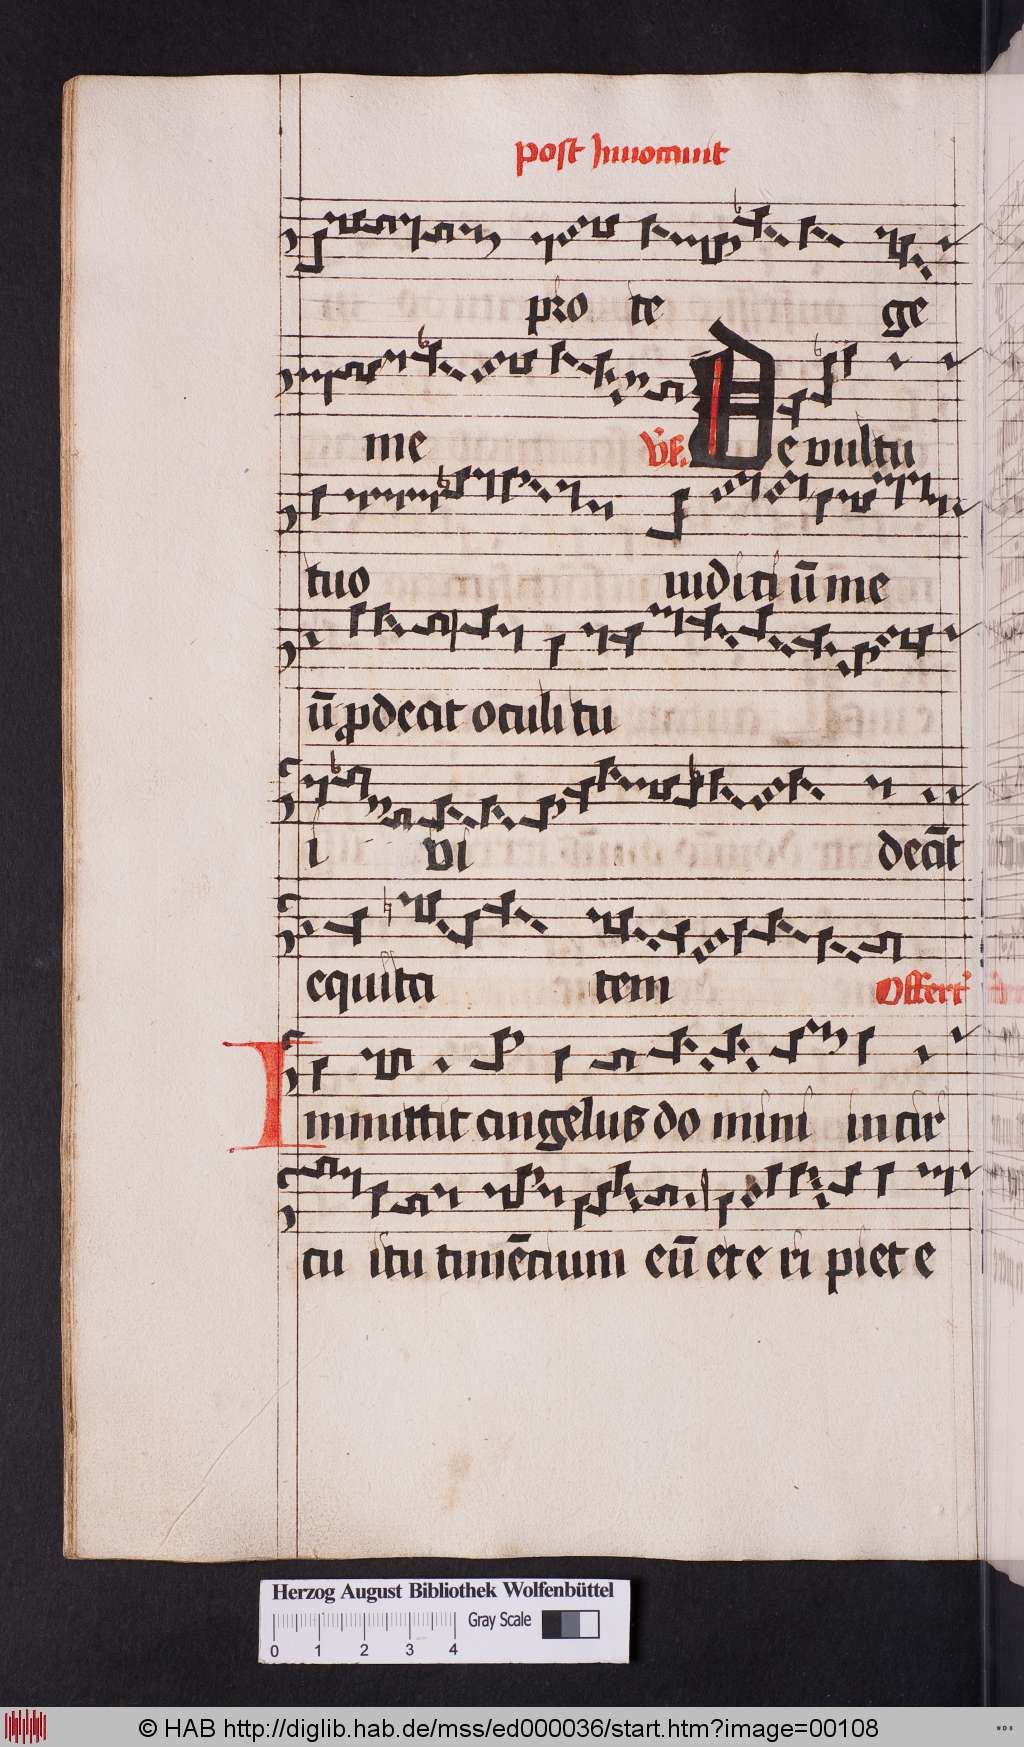 post Inuocauit
pro te ge
me V̄s. De vultu
tuo iudiciū me
ū ꝓdeat oculi tu
i vi deāt
equita tem Offert'
Immittit angelus do mini in cir
cu itu timēcium eū et e ri piet e
Herzog August Bibliothek Wolfenbüttel
Gray Scale
0 1 2 3 4
© HAB http://diglib.hab.de/mss/ed000036/start.htm?image=00108